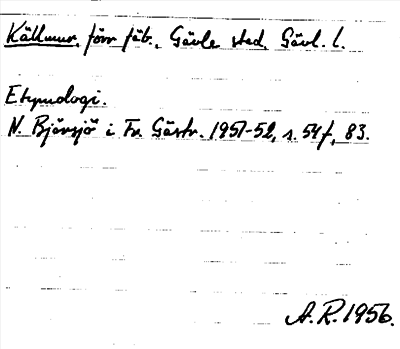 Källmur, förr fäb., Gävle stad, Gävl. l.
Etymologi.
N. Bjärsjö i Fr. Gästr. 1951-52, s. 54f, 83.
A. R. 1956.